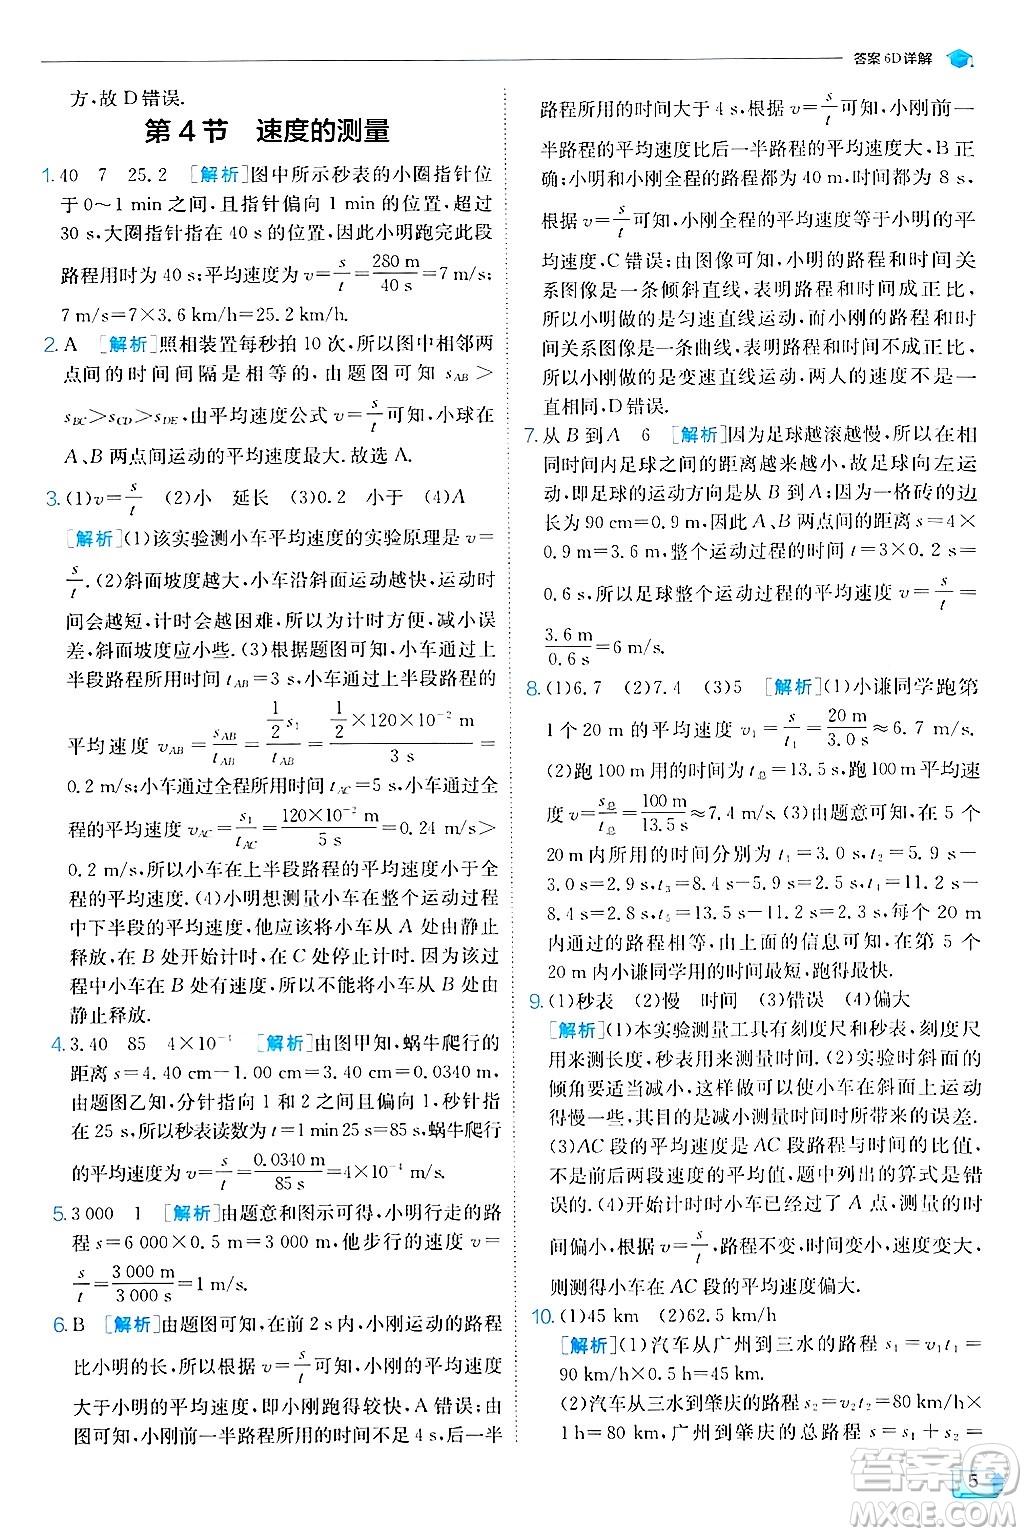 答案 6D详解
方,故 D 错误.
第 4 节 速度的测量
1. 40 7 25.2 [解析]图中所示秒表的小圈指针位
于 0～1 min 之间,且指针偏向 1 min 的位置,超过
30 s,大圈指针指在 40 s 的位置,故小明跑完此段
路程用时为 40 s;平均速度为 v=s/t=280 m/40 s=7 m/s;
7 m/s=7×3.6 km/h=25.2 km/h.
2. A [解析]照相装置每秒拍 10 次,所以图中相邻两
点间的时间间隔是相等的,由题图可知 s_AB>
s_BC>s_CD>s_DE,由平均速度公式 v=s/t可知,小球在
A、B 两点间运动的平均速度最大.故选 A.
3. (1)v=s/t (2)小 延长 (3)0.2 小于 (4)A
[解析](1)该实验测小车平均速度的实验原理是 v=
s/t.(2)斜面坡度越大,小车沿斜面运动越快,运动时
间会越短,计时会越困难,所以为计时方便,减小误
差,斜面坡度应小些.(3)根据题图可知,小车通过上
半段路程所用时间 t_AB=3 s,则小车通过上半段的
平均速度 v_AB=s_AB/t_AB=(1/2 s₁)/t_AB=(1/2×120×10⁻² m)/3 s=
0.2 m/s.小车通过全程所用时间 t_AC=5 s,小车通过全
程的平均速度 v_AC=s₁/t_AC=120×10⁻² m/5 s=0.24 m/s>
0.2 m/s,所以小车在上半段路程的平均速度小于全
程的平均速度.(4)小明想测量小车在整个运动过程
中下半段的平均速度,他应该将小车从 A 处由静止
释放,在 B 处开始计时,在 C 处停止计时.因为该过
程中小车在 B 处有速度,所以不能将小车从 B 处由
静止释放.
4. 3.40 85 4×10⁻⁴ [解析]由图甲知,蜗牛爬行的
距离 s=4.40 cm-1.00 cm=3.40 cm=0.0340 m;
由题图乙知,分针指向 1 和 2 之间且偏向 1,秒针指
在 25 s,所以秒表读数为 t=1 min 25 s=85 s,蜗牛爬行
的平均速度为 v=s/t=0.0340 m/85 s=4×10⁻⁴ m/s.
5. 3 000 1 [解析]由题意和图示可得,小明行走的路
程 s=6 000×0.5 m=3 000 m.他步行的速度 v=
s/t=3 000 m/3 000 s=1 m/s.
6. B [解析]由题图可知,在前 2 s 内,小刚运动的路程
比小明的长,所以根据 v=s/t可知,小刚的平均速度
大于小明的平均速度,小刚跑得较快,A 错误;由题
图可知,小刚前一半路程所用的时间不足 4 s,后一半
路程所用的时间大于 4 s,根据 v=s/t可知,小刚前一
半路程的平均速度比后一半路程的平均速度大,B
正确;小明和小刚全程的路程都为 40 m,时间为 8 s,
根据 v=s/t可知,小刚全程的平均速度等于小明的平
均速度,C 错误;由图像可知,小明的路程和时间关
系图像是一条倾斜直线,表明路程和时间成正比,
所以小明做的是匀速直线运动,而小刚的路程和时
间关系图像是一条曲线,表明路程和时间不成正比,
所以小刚做的是变速直线运动,两人的速度不会一
直相同,D 错误.
7. 从 B 到 A 6 [解析]因为足球越滚越慢,所以在相
同时间内足球运动的距离越来越小,故足球向左运
动,即足球的运动方向是 B 到 A;因为一格砖的边
长为 90 cm=0.9 m,因此 A、B 两点间的距离 s=4×
0.9 m=3.6 m,整个运动过程的时间 t=6×0.1 s=
0.6 s,所以足球整个运动过程的平均速度 v=s/t=
3.6 m/0.6 s=6 m/s.
8. (1)6.7 (2)7.4 (3)5 [解析](1)小谦同学跑第
1 个 20 m 的平均速度 v₁=s/t₁=20 m/3.0 s≈6.7 m/s.
(2)跑 100 m 用的时间为 t总=13.5 s,跑 100 m 平均速
度 v=s总/t总=100 m/13.5 s≈7.4 m/s.(3)由题意可知,在 5 个
20 m 内所用的时间分别为 t₁=3.0 s,t₂=5.9 s-
3.0 s=2.9 s,t₃=8.4 s-5.9 s=2.5 s,t₄=11 s-
8.4 s=2.6 s,t₅=13.5 s-11 s=2.5 s,每个 20 m
内通过的路程相等,由上面的信息可知,在第 5 个
20 m 内小谦同学用的时间最短,跑得最快.
9. (1)秒表 (2)慢 时间 (3)错误 (4)偏大
[解析](1)本实验测量工具有刻度尺和秒表,刻度尺
用来测长度,秒表用来测量时间.(2)实验时斜面的
倾角要适当减小,这样做可以使小车在斜面上运动
得慢一些,其目的是减小测量时间时所带来的误差.
(3)AC 段的平均速度是 AC 段路程与时间的比值,
不是前后两段速度的平均值,题中列出的算式是错
误的.(4)开始计时时小车已经过了 A 点,测量的时
间偏小,根据 v=s/t,路程不变,时间变小,速度变大,
则测得小车在 AC 段的平均速度偏大.
10. (1)45 km (2)62.5 km/h
[解析](1)汽车从广州到三水的路程 s₁=v₁t₁=
90 km/h×0.5 h=45 km.
(2)汽车从三水到肇庆的路程 s₂=v₂t₂=80 km/h×
1 h=80 km,广州到肇庆的总路程 s=s₁+s₂=
5
答案圈
MXQE.COM